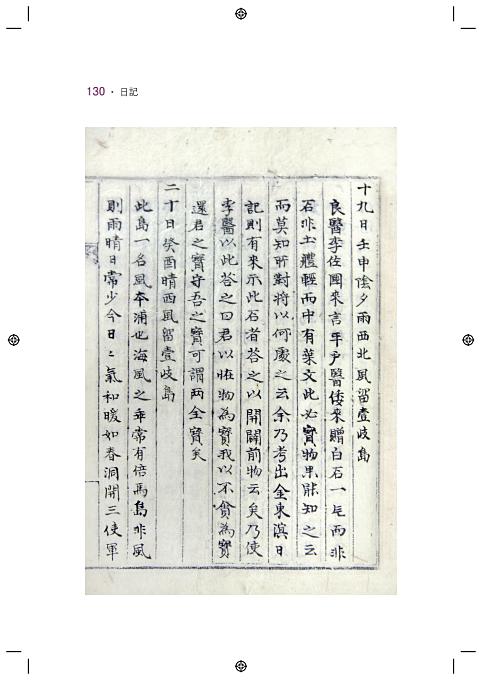 130 · 日記
十九日壬申陰夕雨西北風留壹岐島
良醫李佐國來言平尹醫倭來贈白石一片而非
石非土體輕而中有葉文此必寶物果能知之云
而莫知所對將以何處之云余乃考出金東溟日
記則有來示此石者答之以開闢前物云矣乃使
李醫以此答之曰君以怪物為寶我以不貪為寶
還君之寶守吾之寶可謂兩全寶矣
二十日癸酉晴西風留壹岐島
此島一名風本浦也海風之乖常有倍馬島非風
則雨晴日常少今日〻氣和暖如春洞開三使軍